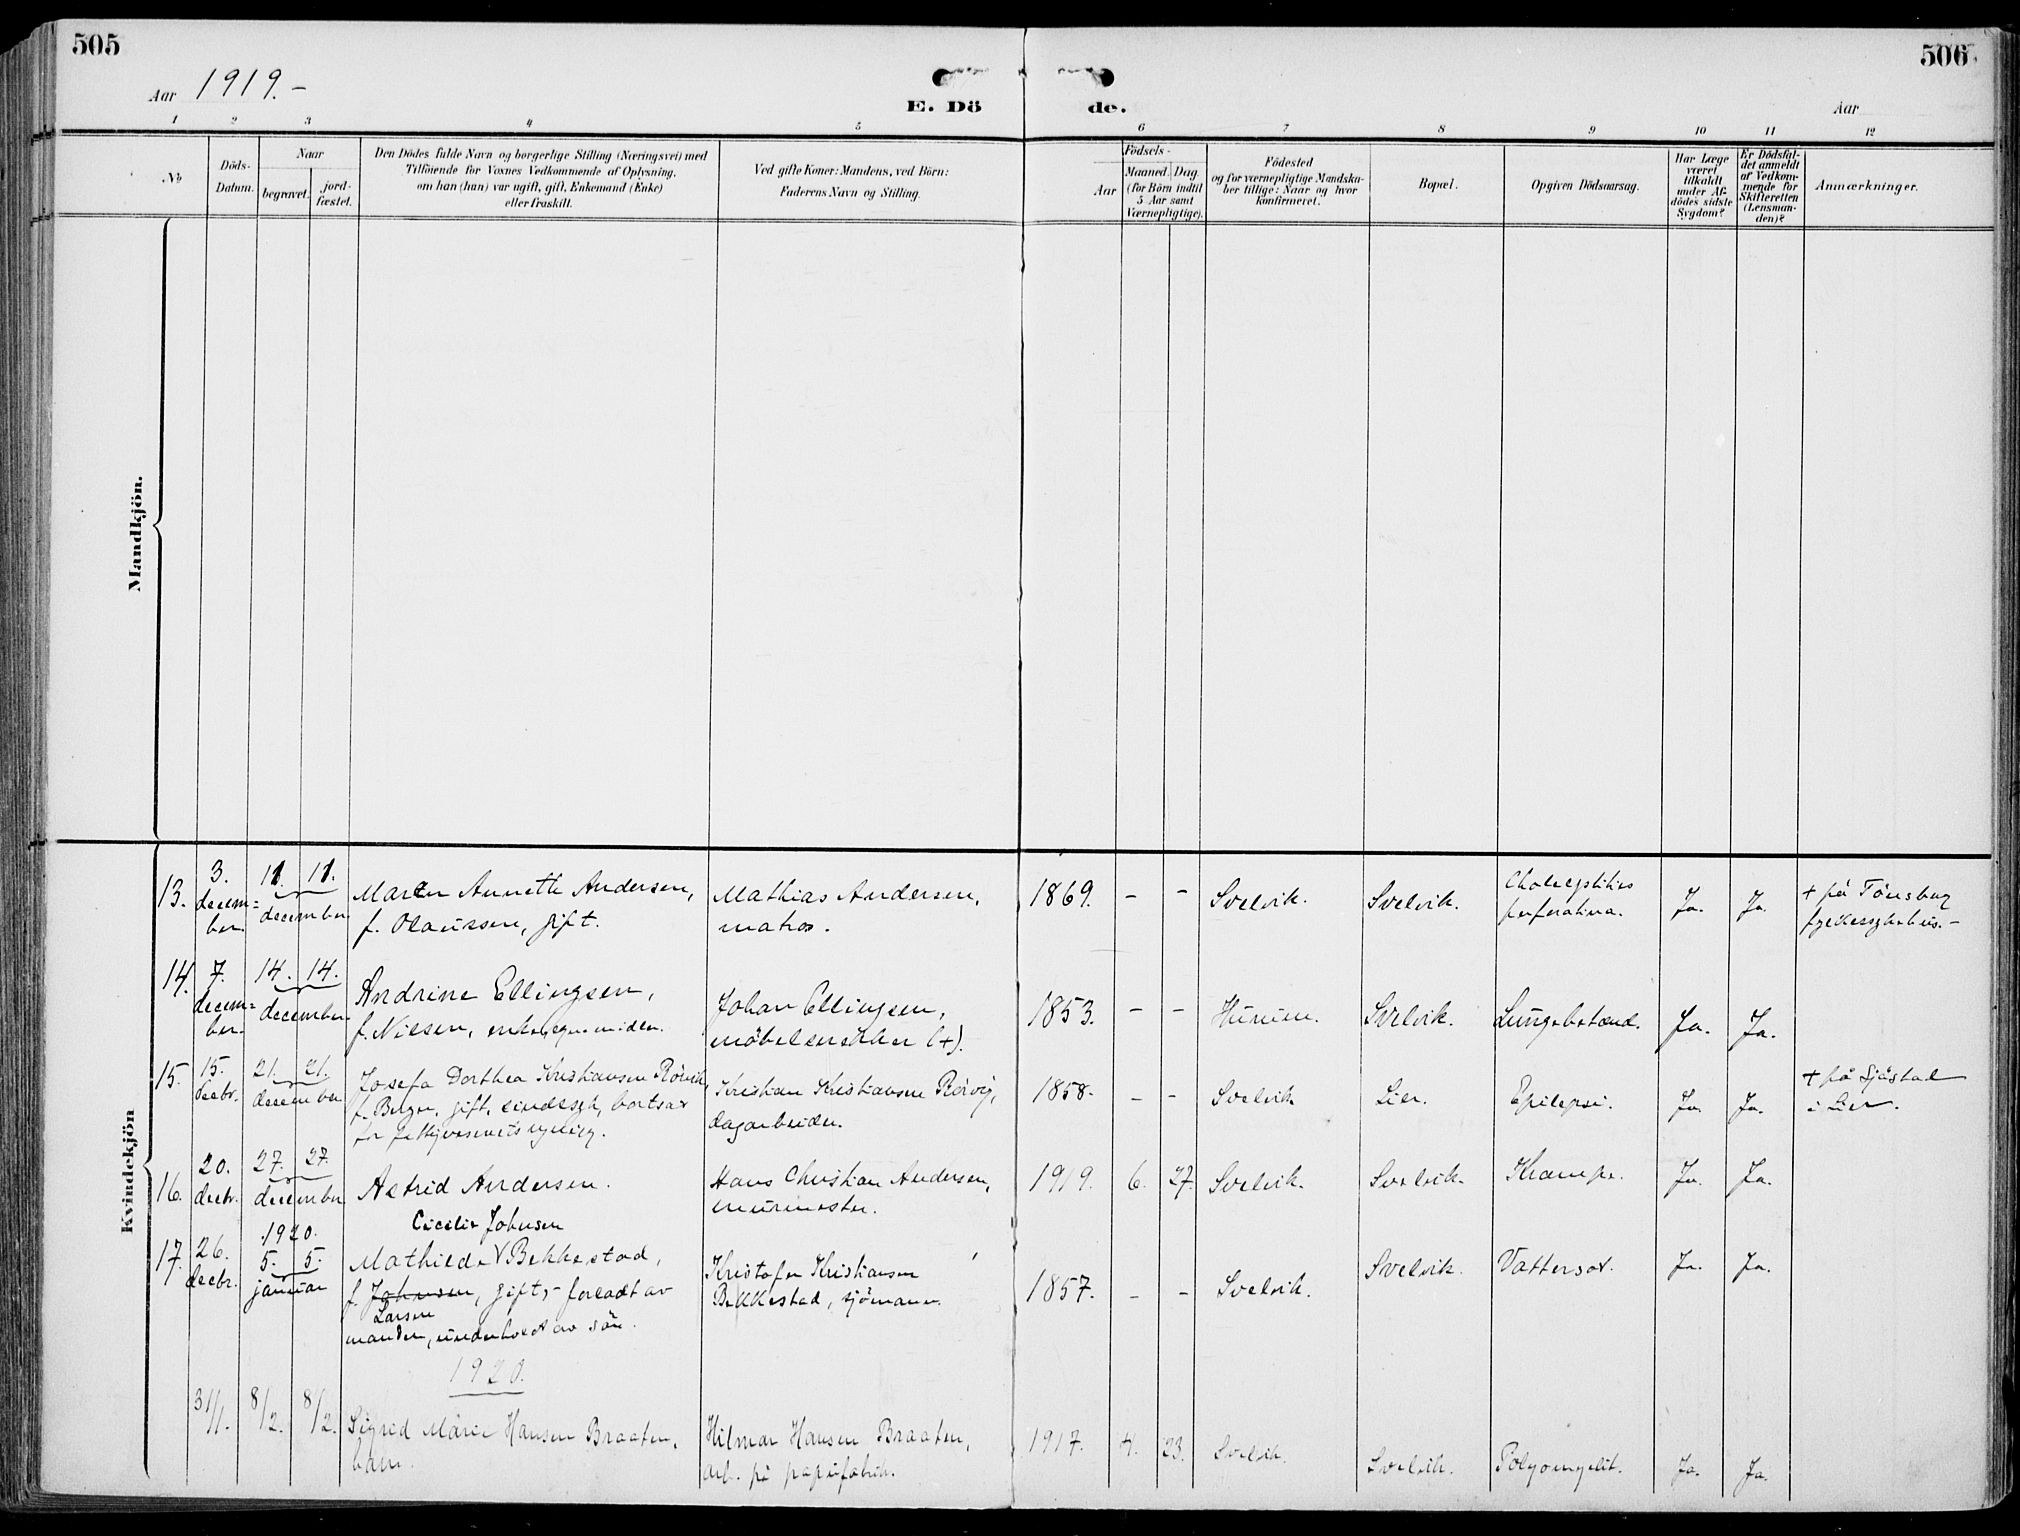 505
506
Aar 1919.-
E. Dö de.
Aar
1 2 3 4 5 6 7 8 9 10 11 12
№
Döds-
Datum.
Naar
begravet.
jord-
fæstet.
Den Dödes fulde Navn og borgerlige Stilling (Næringsvei) med
Tilföiende for Voxnes Vedkommende af Oplysning,
om han (hun) var ugift, gift, Enkemand (Enke)
eller fraskilt.
Ved gifte Koner: Mandens, ved Börn:
Faderens Navn og Stilling.
Födsels-
Aar
Maaned. Dag.
(for Börn indtil
5 Aar samt
Værnepligtige).
Födested
og for værnepligtige Mandska-
ber tillige: Naar og hvor
konfirmeret.
Bopæl.
Opgiven Dödsaarsag.
Har Læge
været
tilkaldt
under Af-
dödes sidste
Sygdom?
Er Dödsfal-
det anmeldt
af Vedkom-
mende for
Skifteretten
(Lensman-
den)?
Anmærkninger.
Mandkjön.
Kvindekjön
13.
3.
decem=
ber.
11. 11.
december
Maren Annette Andersen,
f. Olaussen, gift.
Mathias Andersen,
matros.
1869. - -
Svelvik.
Svelvik.
perforativa.
Ja. Ja.
+ på Tönsberg
14.
7.
decem=
ber.
14. 14.
december
Andrine Ellingsen,
f. Nilsen, enke,
Johan Ellingsen,
möbelsnekker (+).
1853. - -
Hurum.
Svelvik.
Lungebetænd.
Ja. Ja.
15.
15.
decbr.
21. 21.
december
Josefa Dorthea Kristiansen Rörvik,
f. Berger, gift, sindssyk, bortsat
for
Kristian Kristiansen Rörvig,
dagarbeider.
1858. - -
Svelvik
Lier.
Epilepsi.
Ja. Ja.
+ på Sjåstad
i Lier.
16.
20.
decbr.
27. 27.
december
Astrid Andersen.
Hans Christian Andersen,
murmester.
1919. 6. 27.
Svelvik.
Svelvik.
Krampe.
Ja. Ja.
17.
26.
decbr.
1920.
5. 5.
januar
Cecilie Johnsen
Mathilde V Bekkestad,
f. Johnsen, gift,- forladt av
Larsen
manden, underholdt av sön.
Kristofer Kristiansen
Bekkestad, sjömann.
1857. - -
Svelvik.
Svelvik.
Vattersot.
Ja. Ja.
1920.
31/1. 8/2. 8/2.
Sigrid Marie Hansen Braaten,
barn.
Hilmar Hansen Braaten,
arb. på papirfabrik.
1917. 4. 23.
Svelvik.
Svelvik.
Polyomyelit.
Ja. Ja.